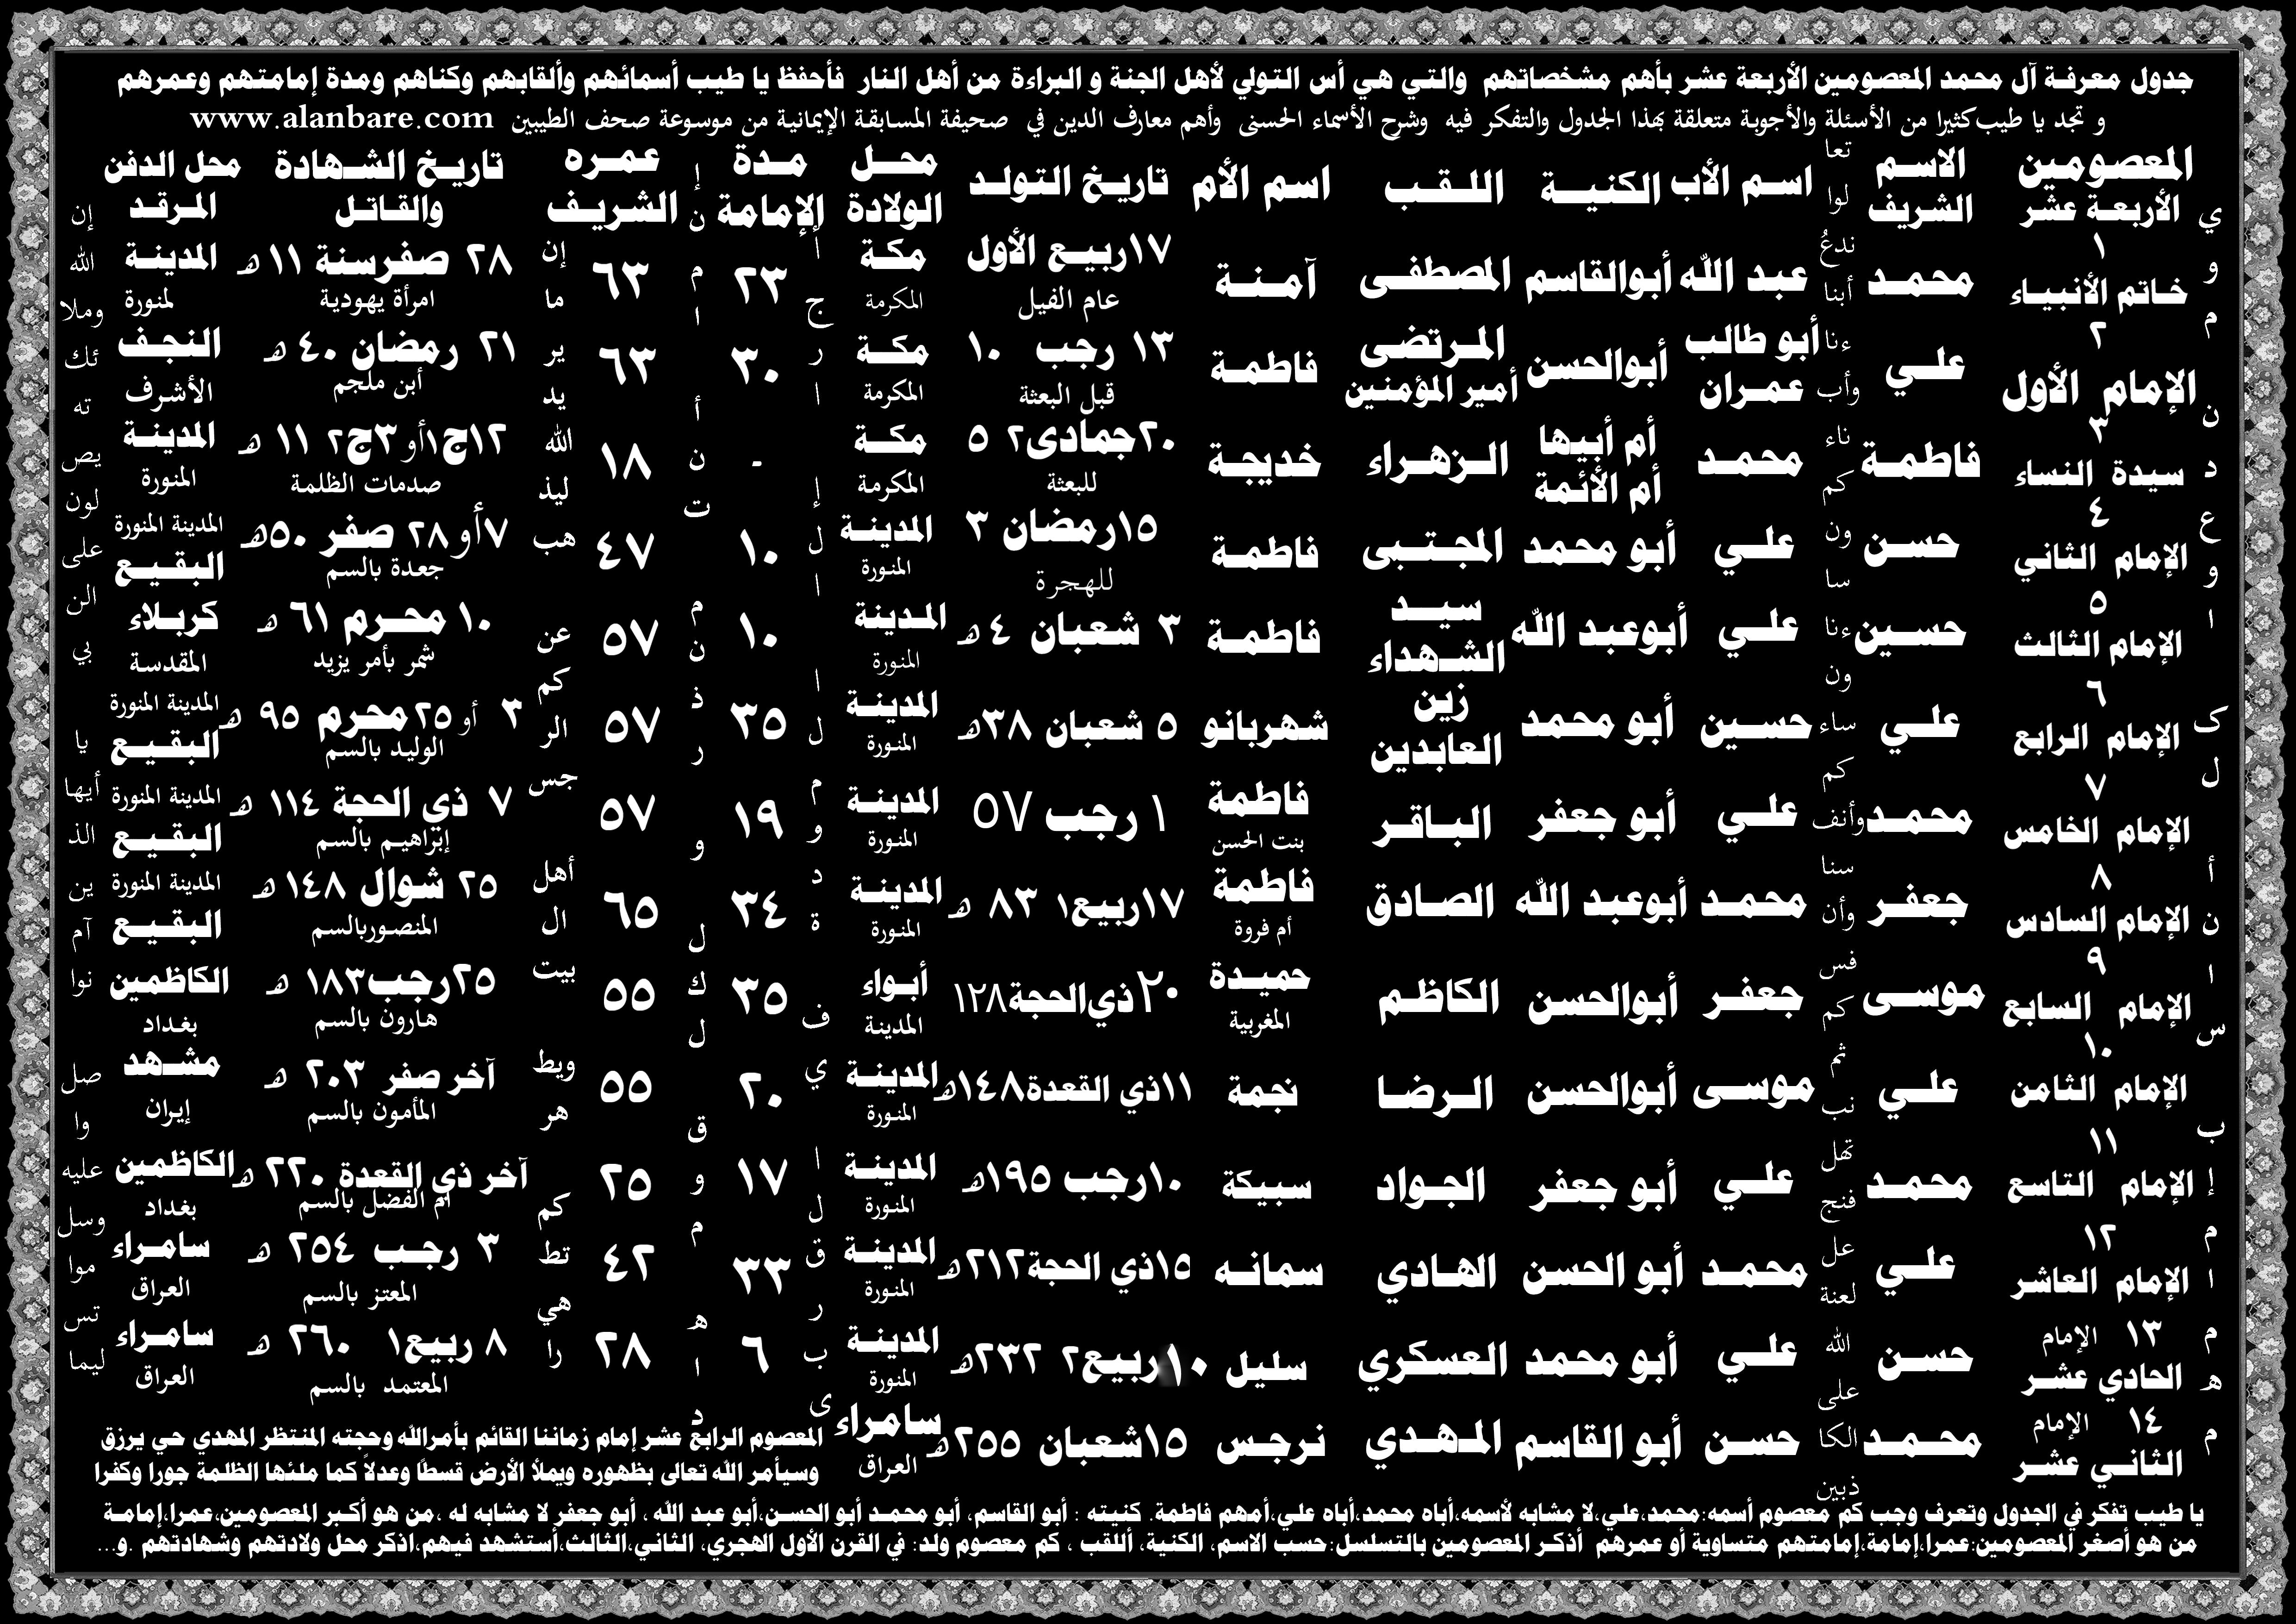 جدول معرفة آل محمد المعصومين الأربعة عشر بأهم مشخصاتهم والتي هي أس التولي لأهل الجنة و البراءة من أهل النار فأحفظ يا طيب أسمائهم وألقابهم وكناهم ومدة إمامتهم وعمرهم
و تجد يا طيب كثيرا من الأسئلة والأجوبة متعلقة بهذا الجدول والتفكر فيه وشرح الأسماء الحسنى وأهم معارف الدين في صحيفة المسابقة الإيمانية من موسوعة صحف الطيبين www.alanbare.com
المعصومين الاسم اسم الأب الكنية اللقب اسم الأم تاريخ التولد محل مدة عمره تاريخ الشهادة محل الدفن
الأربعة عشر الشريف الولادة الإمامة الشريف والقاتل المرقد
١ محمد عبد الله أبوالقاسم المصطفى آمنة ١٧ربيع الأول مكة ٢٣ ٦٣ ٢٨ صفرسنة ١١ ه المدينة
خاتم الأنبياء عام الفيل المكرمة امرأة يهودية لمنورة
٢ علي أبو طالب أبوالحسن المرتضى فاطمة ١٣ رجب ١٠ مكة ٣٠ ٦٣ ٢١ رمضان ٤٠ ه النجف
الإمام الأول عمران أمير المؤمنين قبل البعثة المكرمة أبن ملجم الأشرف
٣ فاطمة محمد أم أبيها الزهراء خديجة ٢٠جمادى٢ ٥ مكة - ١٨ ١٢ج١أو ٣ج٢ ١١ ه المدينة
سيدة النساء أم الأئمة للبعثة المكرمة صدمات الظلمة المنورة
٤ حسن علي أبو محمد المجتبى فاطمة ١٥رمضان ٣ المدينة ١٠ ٤٧ ٧أو ٢٨ صفر ٥٠ه المدينة المنورة
الإمام الثاني للهجرة المنورة جعدة بالسم البقيع
٥ حسين علي أبوعبد الله سيد فاطمة ٣ شعبان ٤ه المدينة ١٠ ٥٧ ١٠ محرم ٦١ ه كربلاء
الإمام الثالث الشهداء المنورة شمر بأمر يزيد المقدسة
٦ علي حسين أبو محمد زين شهربانو ٥ شعبان ٣٨ه المدينة ٣٥ ٥٧ ٣ أو ٢٥ محرم ٩٥ ه المدينة المنورة
الإمام الرابع العابدين المنورة الوليد بالسم البقيع
٧ محمد علي أبو جعفر الباقر فاطمة ١ رجب ٥٧ المدينة ١٩ ٥٧ ٧ ذي الحجة ١١٤ ه المدينة المنورة
الإمام الخامس بنت الحسن المنورة إبراهيم بالسم البقيع
٨ جعفر محمد أبوعبد الله الصادق فاطمة ١٧ربيع١ ٨٣ ه المدينة ٣٤ ٦٥ ٢٥ شوال ١٤٨ ه المدينة المنورة
الإمام السادس أم فروة المنورة المنصوربالسم البقيع
٩ موسى جعفر أبوالحسن الكاظم حميدة ٢٠ذي الحجة١٢٨ أبواء ٣٥ ٥٥ ٢٥رجب١٨٣ ه الكاظمين
الإمام السابع المغربية المدينة هارون بالسم بغداد
١٠ علي موسى أبوالحسن الرضا نجمة ١١ذي القعدة١٤٨ه المدينة ٢٠ ٥٥ آخر صفر ٢٠٣ ه مشهد
الإمام الثامن المنورة المأمون بالسم إيران
١١ محمد علي أبو جعفر الجواد سبيكة ١٠رجب ١٩٥ه المدينة ١٧ ٢٥ آخر ذي القعدة ٢٢٠ ه الكاظمين
الإمام التاسع المنورة أم الفضل بالسم بغداد
١٢ علي محمد أبو الحسن الهادي سمانه ١٥ذي الحجة٢١٢ه المدينة ٣٣ ٤٢ ٣ رجب ٢٥٤ ه سامراء
الإمام العاشر المنورة المعتز بالسم العراق
١٣ الإمام حسن علي أبو محمد العسكري سليل ١٠ربيع٢ ٢٣٢ه المدينة ٦ ٢٨ ٨ ربيع١ ٢٦٠ ه سامراء
الحادي عشر المنورة المعتمد بالسم العراق
١٤ الإمام محمد حسن أبو القاسم المهدي نرجس ١٥شعبان ٢٥٥ه سامراء المعصوم الرابع عشر إمام زماننا القائم بأمرالله وحجته المنتظر المهدي حي يرزق
الثاني عشر العراق وسيأمر الله تعالى بظهوره ويملأ الأرض قسطا وعدلا كما ملئها الظلمة جورا وكفرا
يا طيب تفكر في الجدول وتعرف وجب كم معصوم أسمه:محمد،علي،لا مشابه لأسمه،أباه محمد،أباه علي،أمهم فاطمة. كنيته : أبو القاسم، أبو محمد أبو الحسن،أبو عبد الله ، أبو جعفر لا مشابه له ،من هو أكبر المعصومين،عمرا،إمامة
من هو أصغر المعصومين:عمرا،إمامة،إمامتهم متساوية أو عمرهم أذكر المعصومين بالتسلسل:حسب الاسم، الكنية، أللقب ، كم معصوم ولد: في القرن الأول الهجري، الثاني،الثالث،أستشهد فيهم،اذكر محل ولادتهم وشهادتهم .و...
ي و م ن د ع و ا ك ل أ ن ا س ب إ م ا م ه م
تعا لوا ندعُ أبنا ءنا وأب ناء كم ون سا ءنا ون ساء كم وأنف سنا وأن فس كم ثم نب تهل فنج عل لعنة الله على الكا ذبين
ا ج ر ا إ ل ا ا ل م و د ة ف ي ا ل ق ر ب ى
إ ن م ا أ ن ت م ن ذ ر و ل ك ل ق و م ه ا د
إن ما ير يد الله ليذ هب عن كم الر جس أهل ال بيت ويط هر كم تط هي را
إن الله وملا ئك ته يص لون على الن بي يا أيها الذ ين آم نوا صل وا عليه وسل موا تس ليما